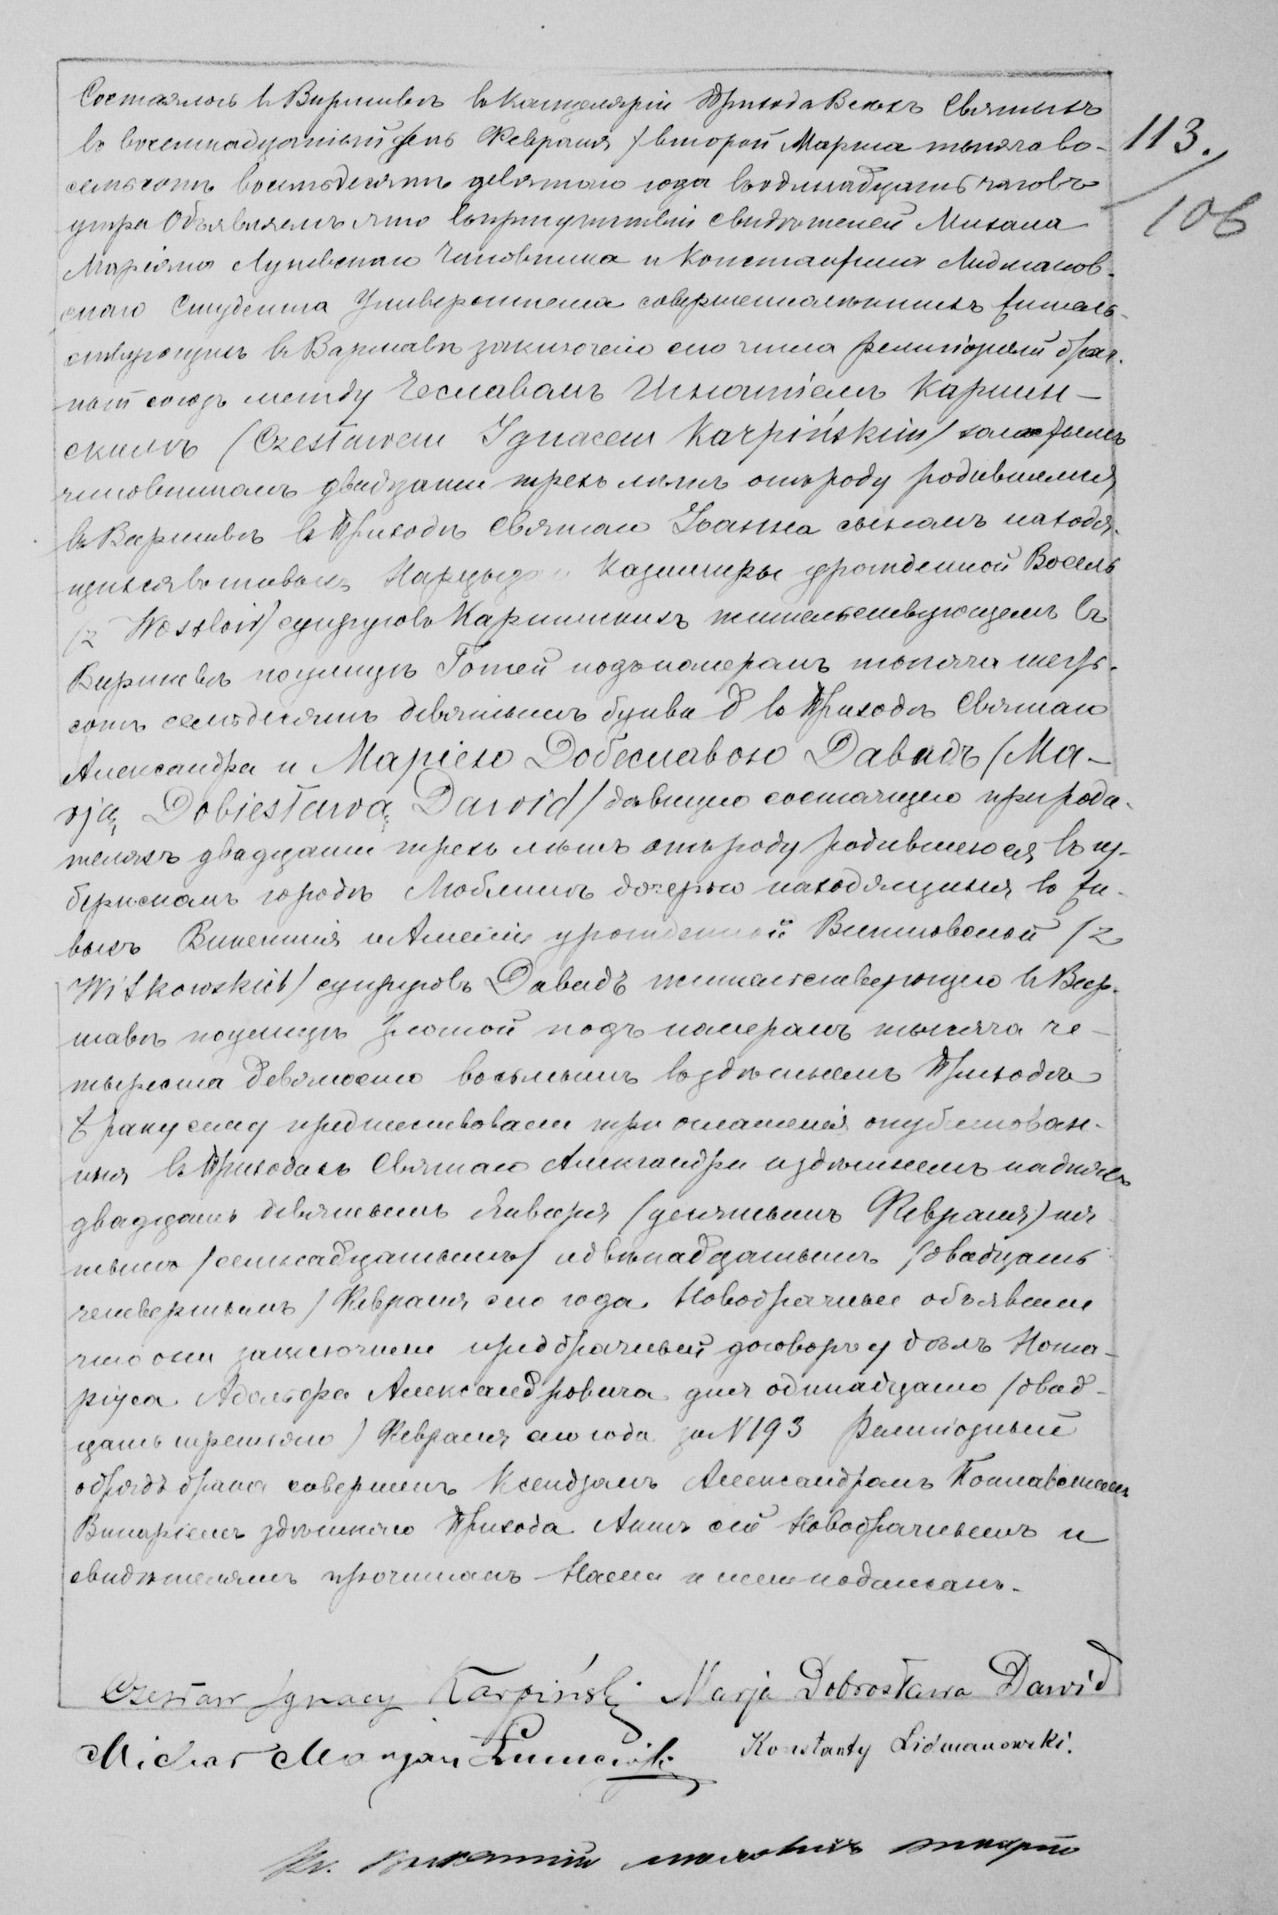 Состоялось въ Варшавѣ въ Канцеляріи Прихода Всѣхъ Святыхъ
въ восемнадцатый день Февраля /второй Марта тысяча во-
семьсотъ восемьдесятъ девятаго года въ одинадцать часовъ
утра Объявляемъ что въ присутствіи свидѣтелей Михала
Маріяна Чиновника и Константина Лидманов-
скаго Студента Университета совершеннолѣтнихъ жительс-
ствующихъ въ Варшавѣ заключенъ сего числа религіозный брач-
ный союзъ между Чеславомъ Игнатіемъ Карпин-
скимъ (Czesławem Ignacem Karpińskim) холостымъ
чиновникомъ двадцати трехъ лѣтъ отъ роду родившимся
въ Варшавѣ въ Приходѣ Святаго Іоанна сыномъ находя-
щихся въ живыхъ Казимиры урожденной Восель
/z супруговъ Карпинскихъ жительствующемъ въ
Варшавѣ по улицѣ Гожей подъ номеромъ тысяча шесть-
сотъ семьдесятъ девятымъ буква д въ Приходѣ Святаго
Александра и Маріею Добеславою Давидъ (Ma-
rją Dobiesławą Dawid) дѣвицею состоящею при роди-
теляхъ двадцати трехъ лѣтъ отъ роду родившеюся въ гу-
бернскомъ городѣ Люблинѣ дочерью находящихся въ жи-
выхъ Викентія и Амеліи урожденной Витковской /z
Witkowskich/ супруговъ Давидъ жительствующею въ Вар-
шавѣ по улицѣ Злотой подъ номеромъ тысяча че-
тыреста девяносто восьмымъ въ здѣшнемъ Приходѣ
Браку сему предшествовали три оглашенія опубликован-
ныя въ Приходахъ Святаго Александра и здѣшнемъ
двадцать девятымъ Января (десятымъ Февраля) пя
тымъ /семнадцатымъ/ и двѣнадцатымъ /двадцать
четвертымъ/ Февраля сего года. Новобрачные объявили
что они заключили предбрачный договоръ у дѣлъ Нота-
ріуса Адольфа Александровича дня одинадцаго /двад-
цать третьяго/ Февраля сего года за N 193 Религіозный
обрядъ брака совершенъ Ксендзомъ Александромъ
Викаріемъ здѣшняго Прихода Актъ сей Новобрачнымъ и
свидѣтелямъ прочитанъ Нами и ими подписанъ.
113.
106
Czesław Ignacy Karpiński Marja Dobrosława Dawid
Michał Marjan Konstanty Lidmanowski.
Кс.